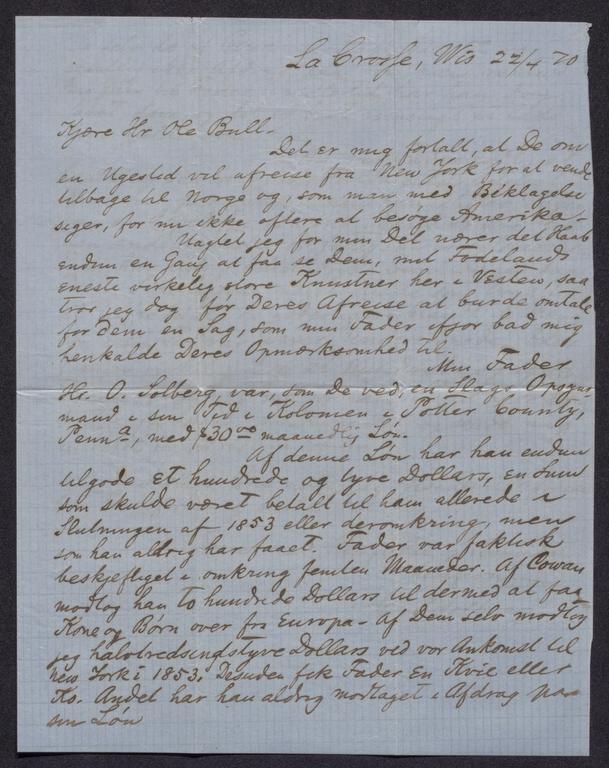 La Crosse, Wis 22/4 70
Kjære Hr Ole Bull.
Det er mig fortalt, at De om
en Ugestid vil afreise fra New York for at vende
tilbage til Norge og, som man med Beklagelse
siger, for nu ikke oftere at besøge Amerika.
Uagtet jeg for min Del nærer det Haab
endnu en Gang at faa se Dem, mit Fødelands
eneste virkelig store Knustner her i Vesten, saa
tror jeg dog før Deres Afreise at burde omtale
for Dem en Sag, som min Fader ifjor bad mig
henkalde Deres Opmærksomhed til.
Min Fader
Hr. O. Solberg var, som De ved, en Slags Opsyns-
mand i sin Tid i Kolonien i Potter County,
Penna, med $30 00 maanedlig Løn.
Af denne Løn har han endnu
tilgode et hundrede og tyve Dollars, en Sum
som skulde været betalt til ham allerede i
Slutningen af 1853 eller deromkring, men
som han aldrig har faaet. Fader var faktisk
beskjeftiget i omkring femten Maaneder. Af Cowan
modtog han to hundrede Dollars til dermed at faa
Kone og Børn over fra Europa - af Dem selv modtog
jeg halvtredsindstyve Dollars ved vor Ankomst til
New York i 1853. Desuden fik Fader en Kvie eller
Ko. Andet har han aldrig modtaget i Afdrag paa
sin Løn